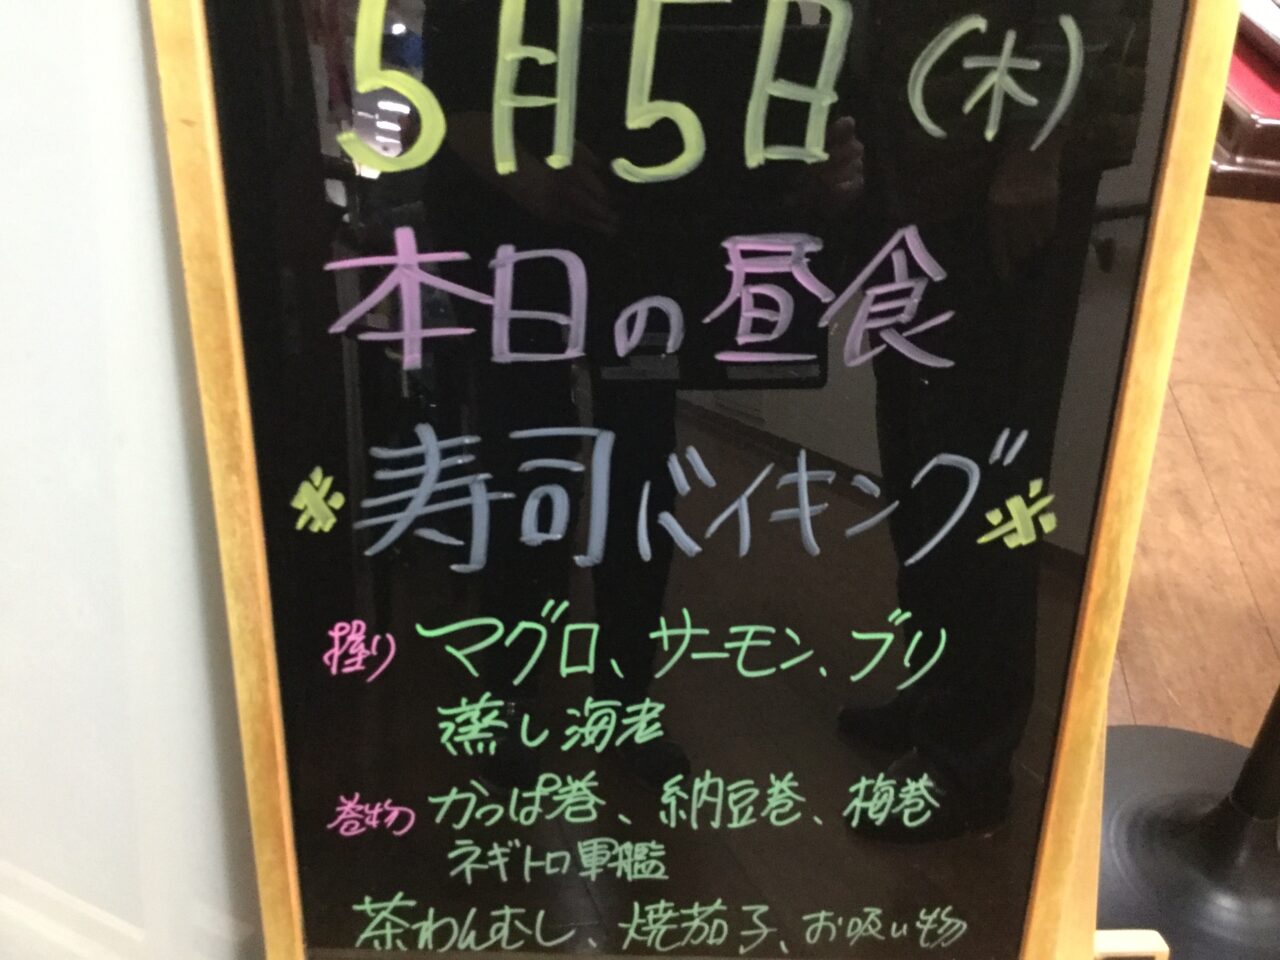 5月5日(木)
本日の昼食
※寿司バイキング※
握り マグロ、サーモン、ブリ
蒸し海老
巻物 かっぱ巻、納豆巻、梅巻
ネギトロ軍艦
茶わんむし、焼茄子、お吸い物